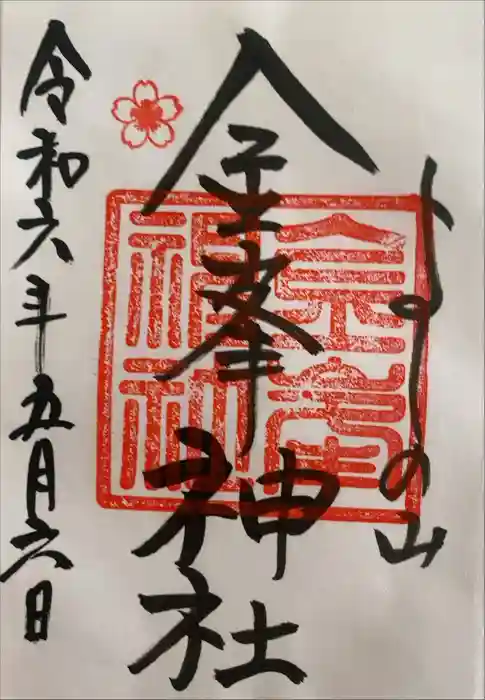 よしのの山
金峯神社
令和六年五月六日